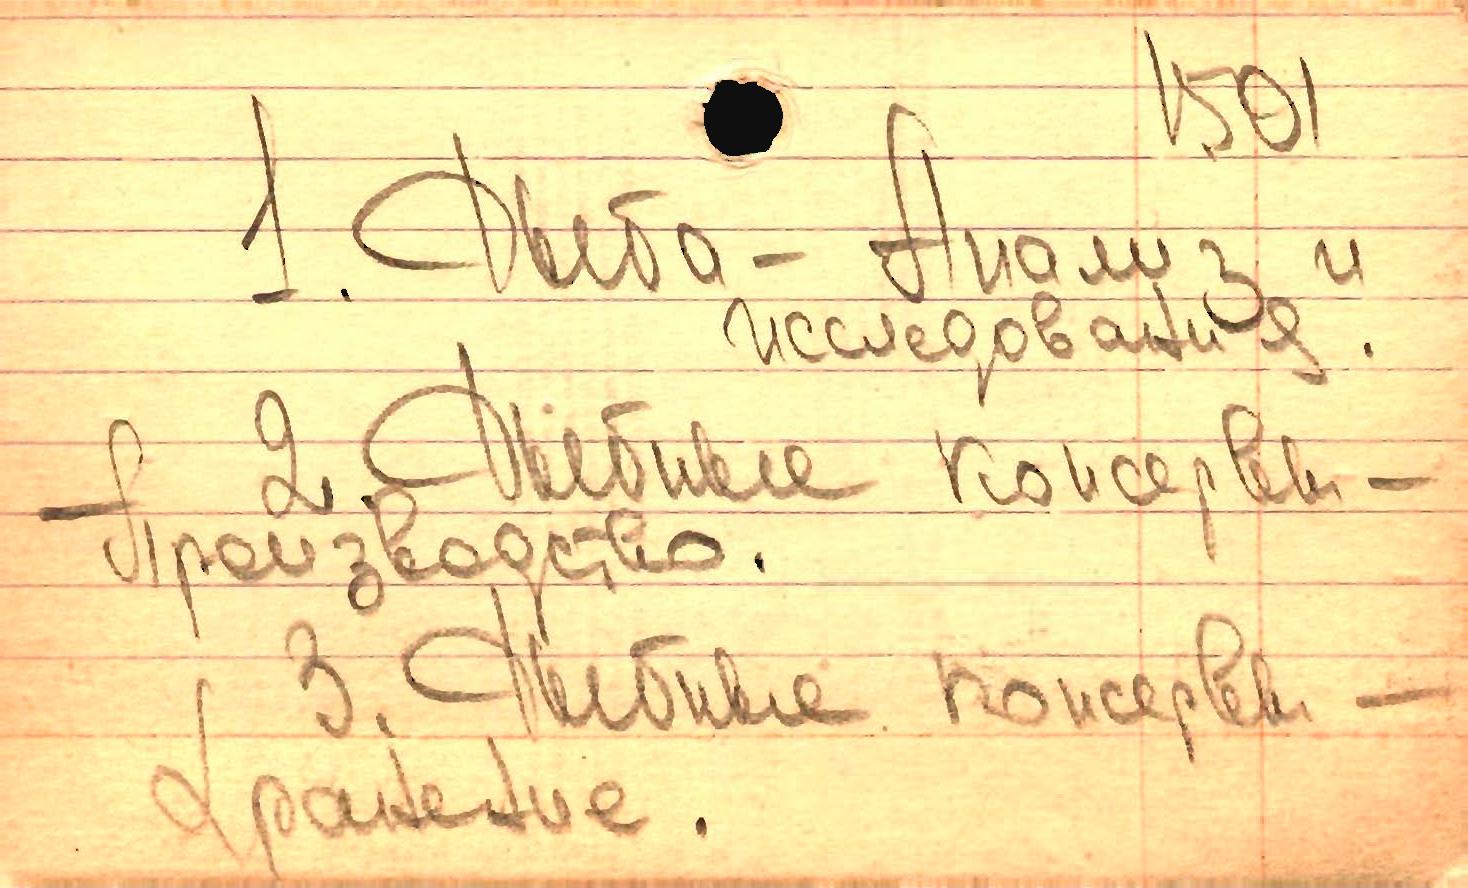 1501
1. Рыба - Анализ и
исследования.
2. Рыбные консервы -
Производство.
3. Рыбные консервы -
Хранение.